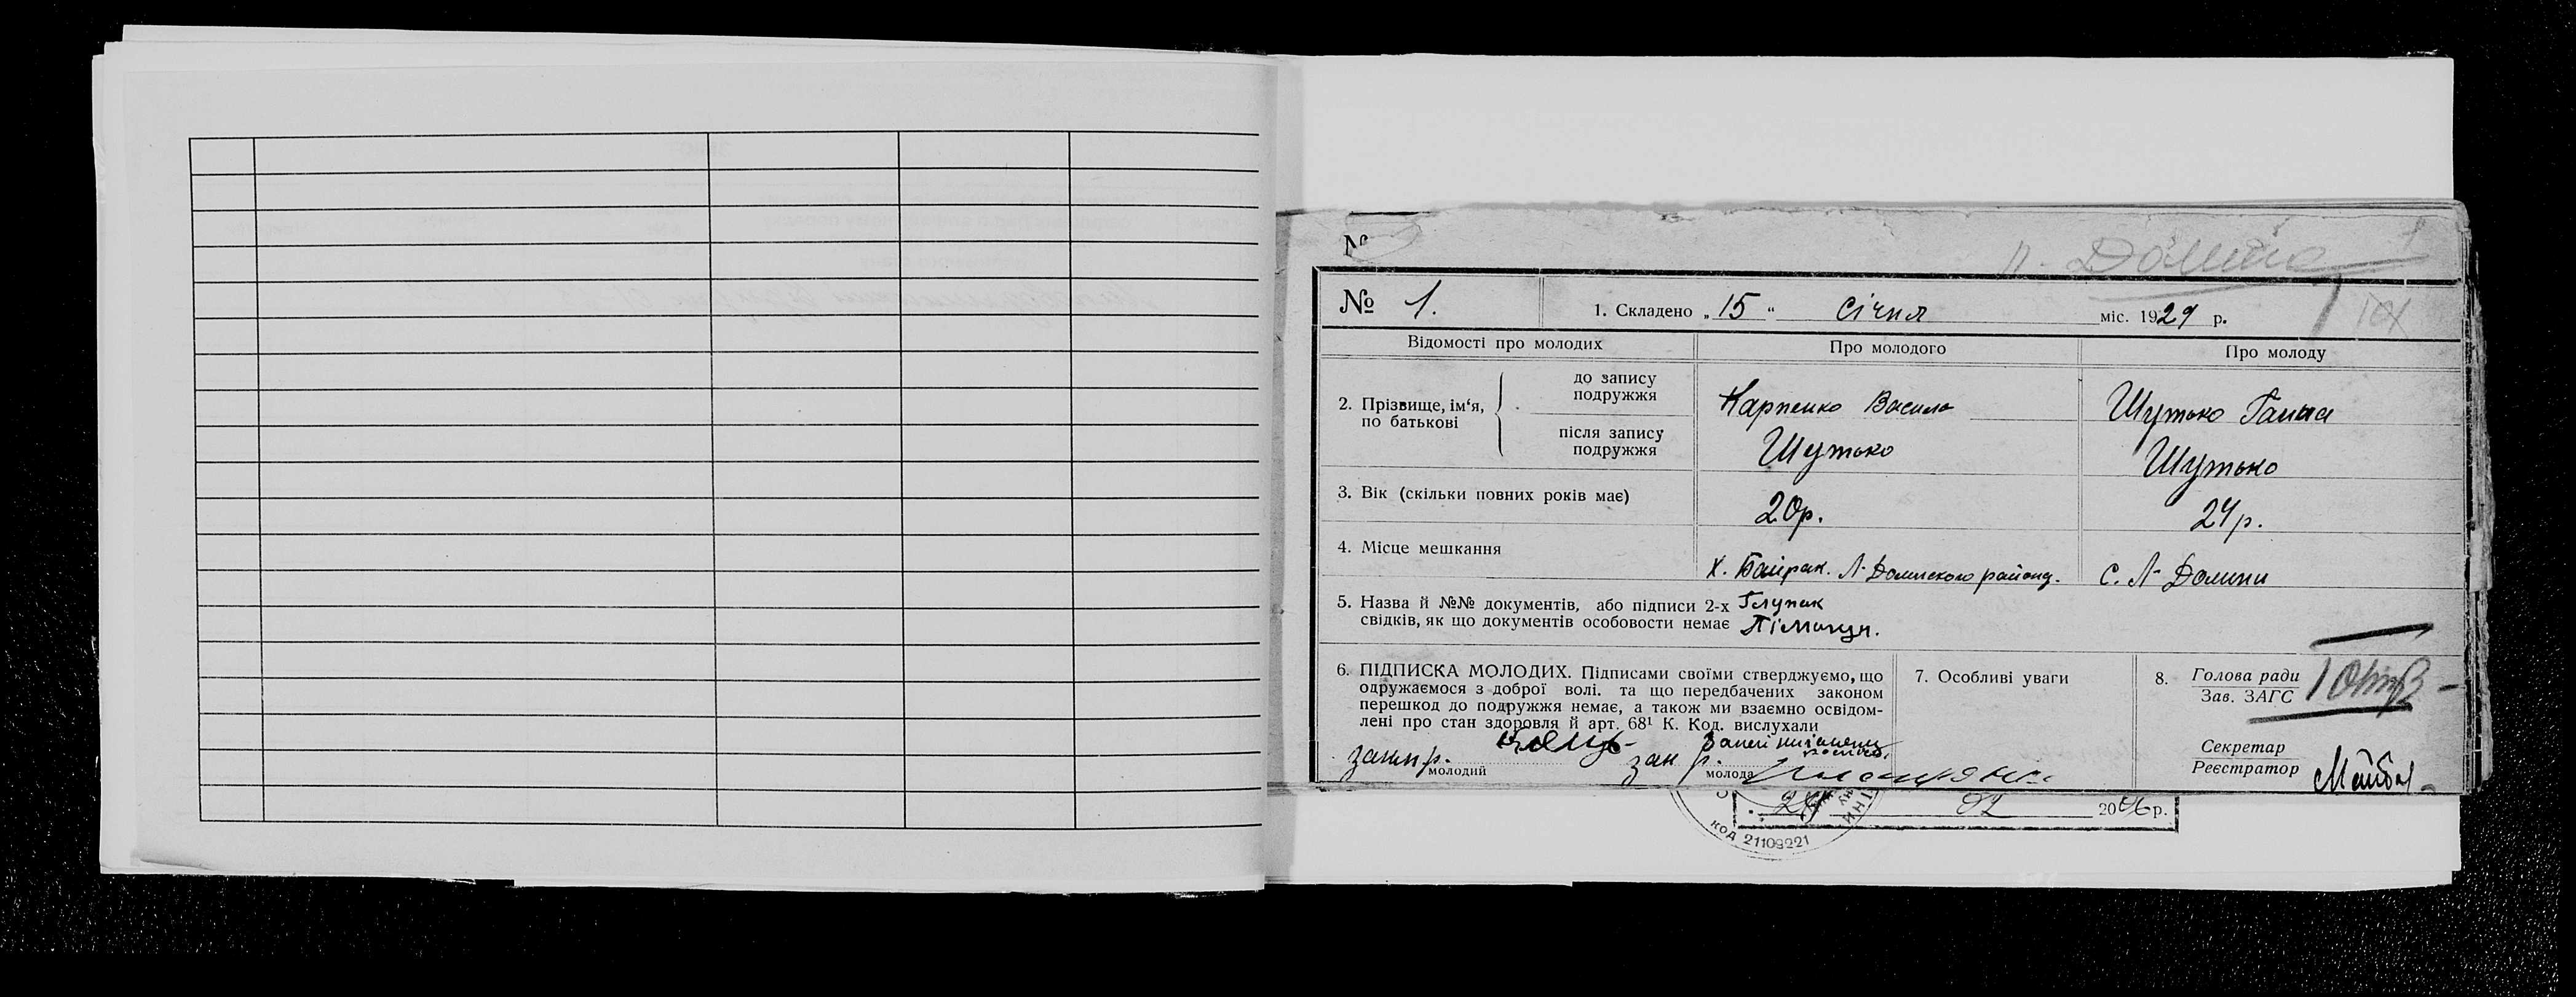 №
Долина
№ 1.
1. Складено „ 15 “ Січня міс. 1929 р.
Відомості про молодих
Про молодого
Про молоду
2. Прізвище, ім‘я, по батькові
до запису подружжя
Карпенко Василь
Шутько Ганна
після запису подружжя
Шутько
Шутько
3. Вік (скільки повних років має)
20р.
24р.
4. Місце мешкання
х. Байрак. Л-Долинского району.
с. Л-Долини
5. Назва й №№ документів, або підписи 2-х
свідків, як що документів особовости немає
6. ПІДПИСКА МОЛОДИХ. Підписами своїми стверджуємо, що
одружаємося з доброї волі. та що передбачених законом
перешкод до подружжя немає, а також ми взаємно освідом-
лені про стан здоровля й арт. 68¹ К. Код. вислухали
молодий
молода
7. Особливі уваги
8. Голова ради
Зав. ЗАГС
Секретар
Реєстратор
02 2006 р.
код 21109221